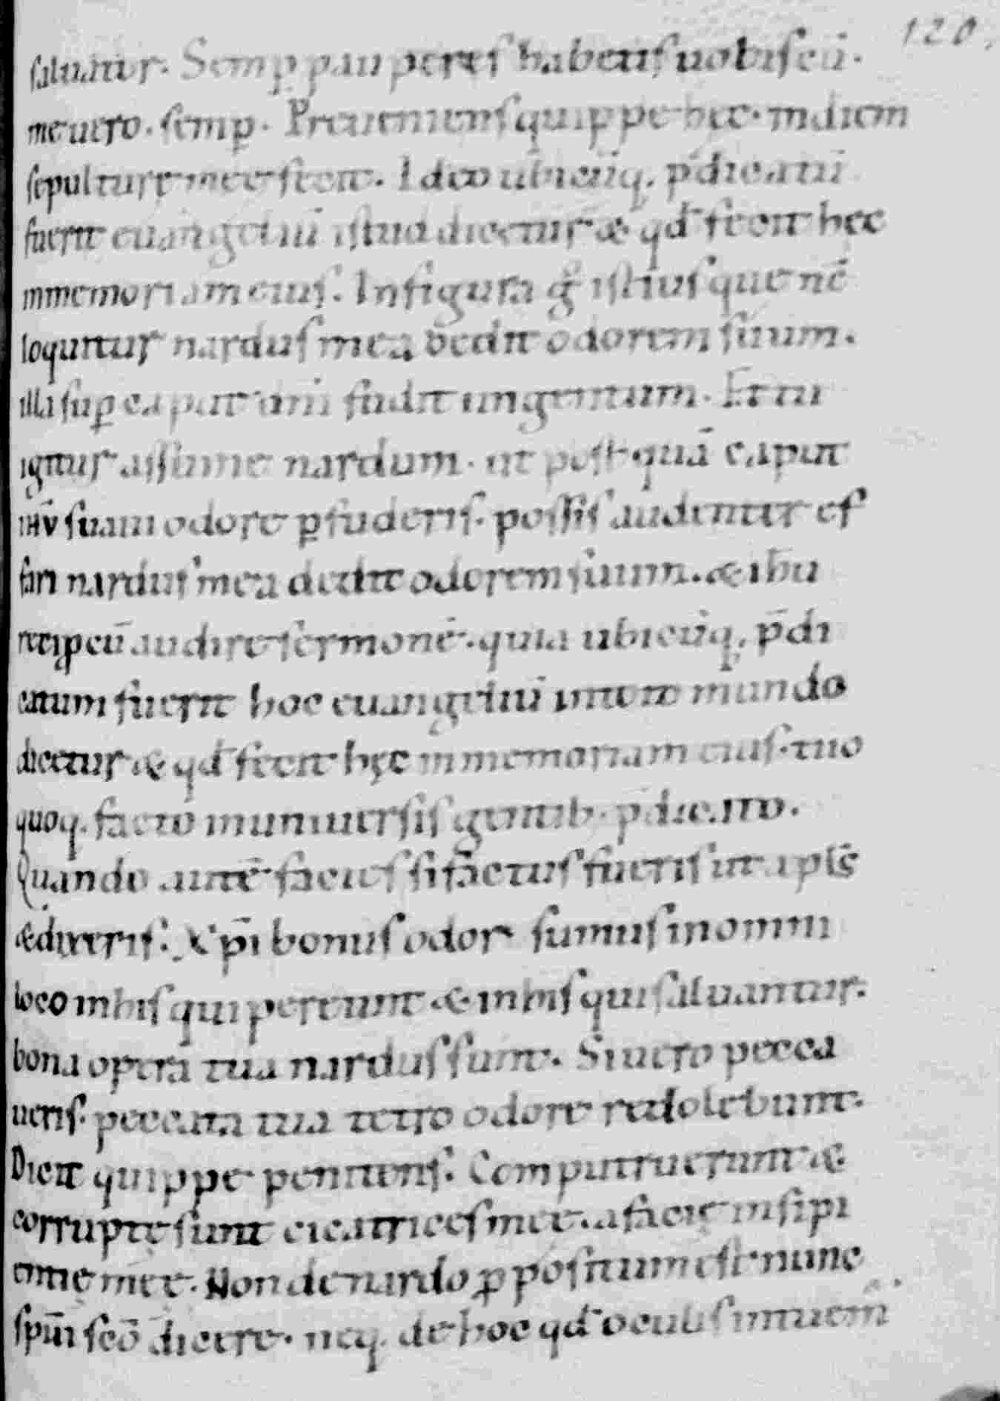 120.
saluatur. Semp̱ pauperes habetis uobiscū.
me uero. semp̱. Preueniens quippe hęc. in diem
sepulture mee fecit. Ideo ubicūq; p̄dicatū
fuerit euangeliū istud dicetur & qđ fecit hęc
in memoriam eius. In figura g̊ istius que nc̄
loquitur nardus mea dedit odorem suum.
illa sup̱ caput dn̄i fudit ungentum. Et tu
igitur assume nardum. ut postquā caput
ihū suaui odore p̱fuderis. possis audenter ef
fari nardus mea dedit odorem suum. & ihū
recip̱cū audire sermonē. quia ubicūq; p̄di
catum fuerit hoc euangeliū in toto mundo
dicetur & qđ fecit hęc in memoriam eius. tuo
quoq; facto in uniuersis gentib; p̄dicato.
Quando autē facies si factus fueris ut apl̄s
& dixeris. Xp̄i bonus odor sumus in omni
loco in his qui pereunt & in his qui saluantur.
bona opera tua nardus sunt. Si uero pecca
ueris. peccata tua tetro odore redolebunt.
Dicit quippe penitens. Computruerunt &
corrupte sunt cicatrices mee. a facie insipi
entie mee. Non de nardo ꝓpositum est nunc
spm̄ scō dicere. neq; de hoc qđ oculis intuem̄